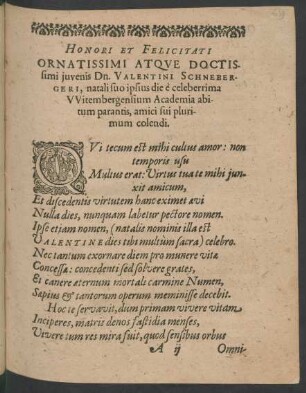 HONORI ET FELICITATI
ORNATISSIMI ATQVE DOCTIS-
simi juvenis Dn. VALENTINI SCHNEBER-
GERI, natali suo ipsius die é celeberrima
VVitembergensium Academia abi-
tum parantis, amici sui pluri-
mum colendi.
QVi tecum est mihi cultus amor: non
temporis usu
Multus erat: Virtus tua te mihi jun-
xit amicum,
Et discedentis virtutem hanc eximet avi
Nulla dies, nunquam labetur pectore nomen.
Ipse etiam nomen, (natalis nominis illa est
VALENTINE dies tibi multùm sacra) celebro.
Nec tantum exornare diem pro munere vitæ
Concessa: concedenti sed solvere grates,
Et canere æternum mortali carmine Numen,
Sæpius & tantorum operum meminisse decebit.
Hoc te servavit, dum primam vivere vitam
Inciperes, matris denos fastidia menses,
Vivere tum res mira fuit, quod sensibus orbus
A ij Omni-